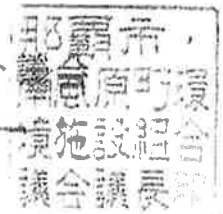 那覇市・
南風原町環
境施設組合
議会議長印